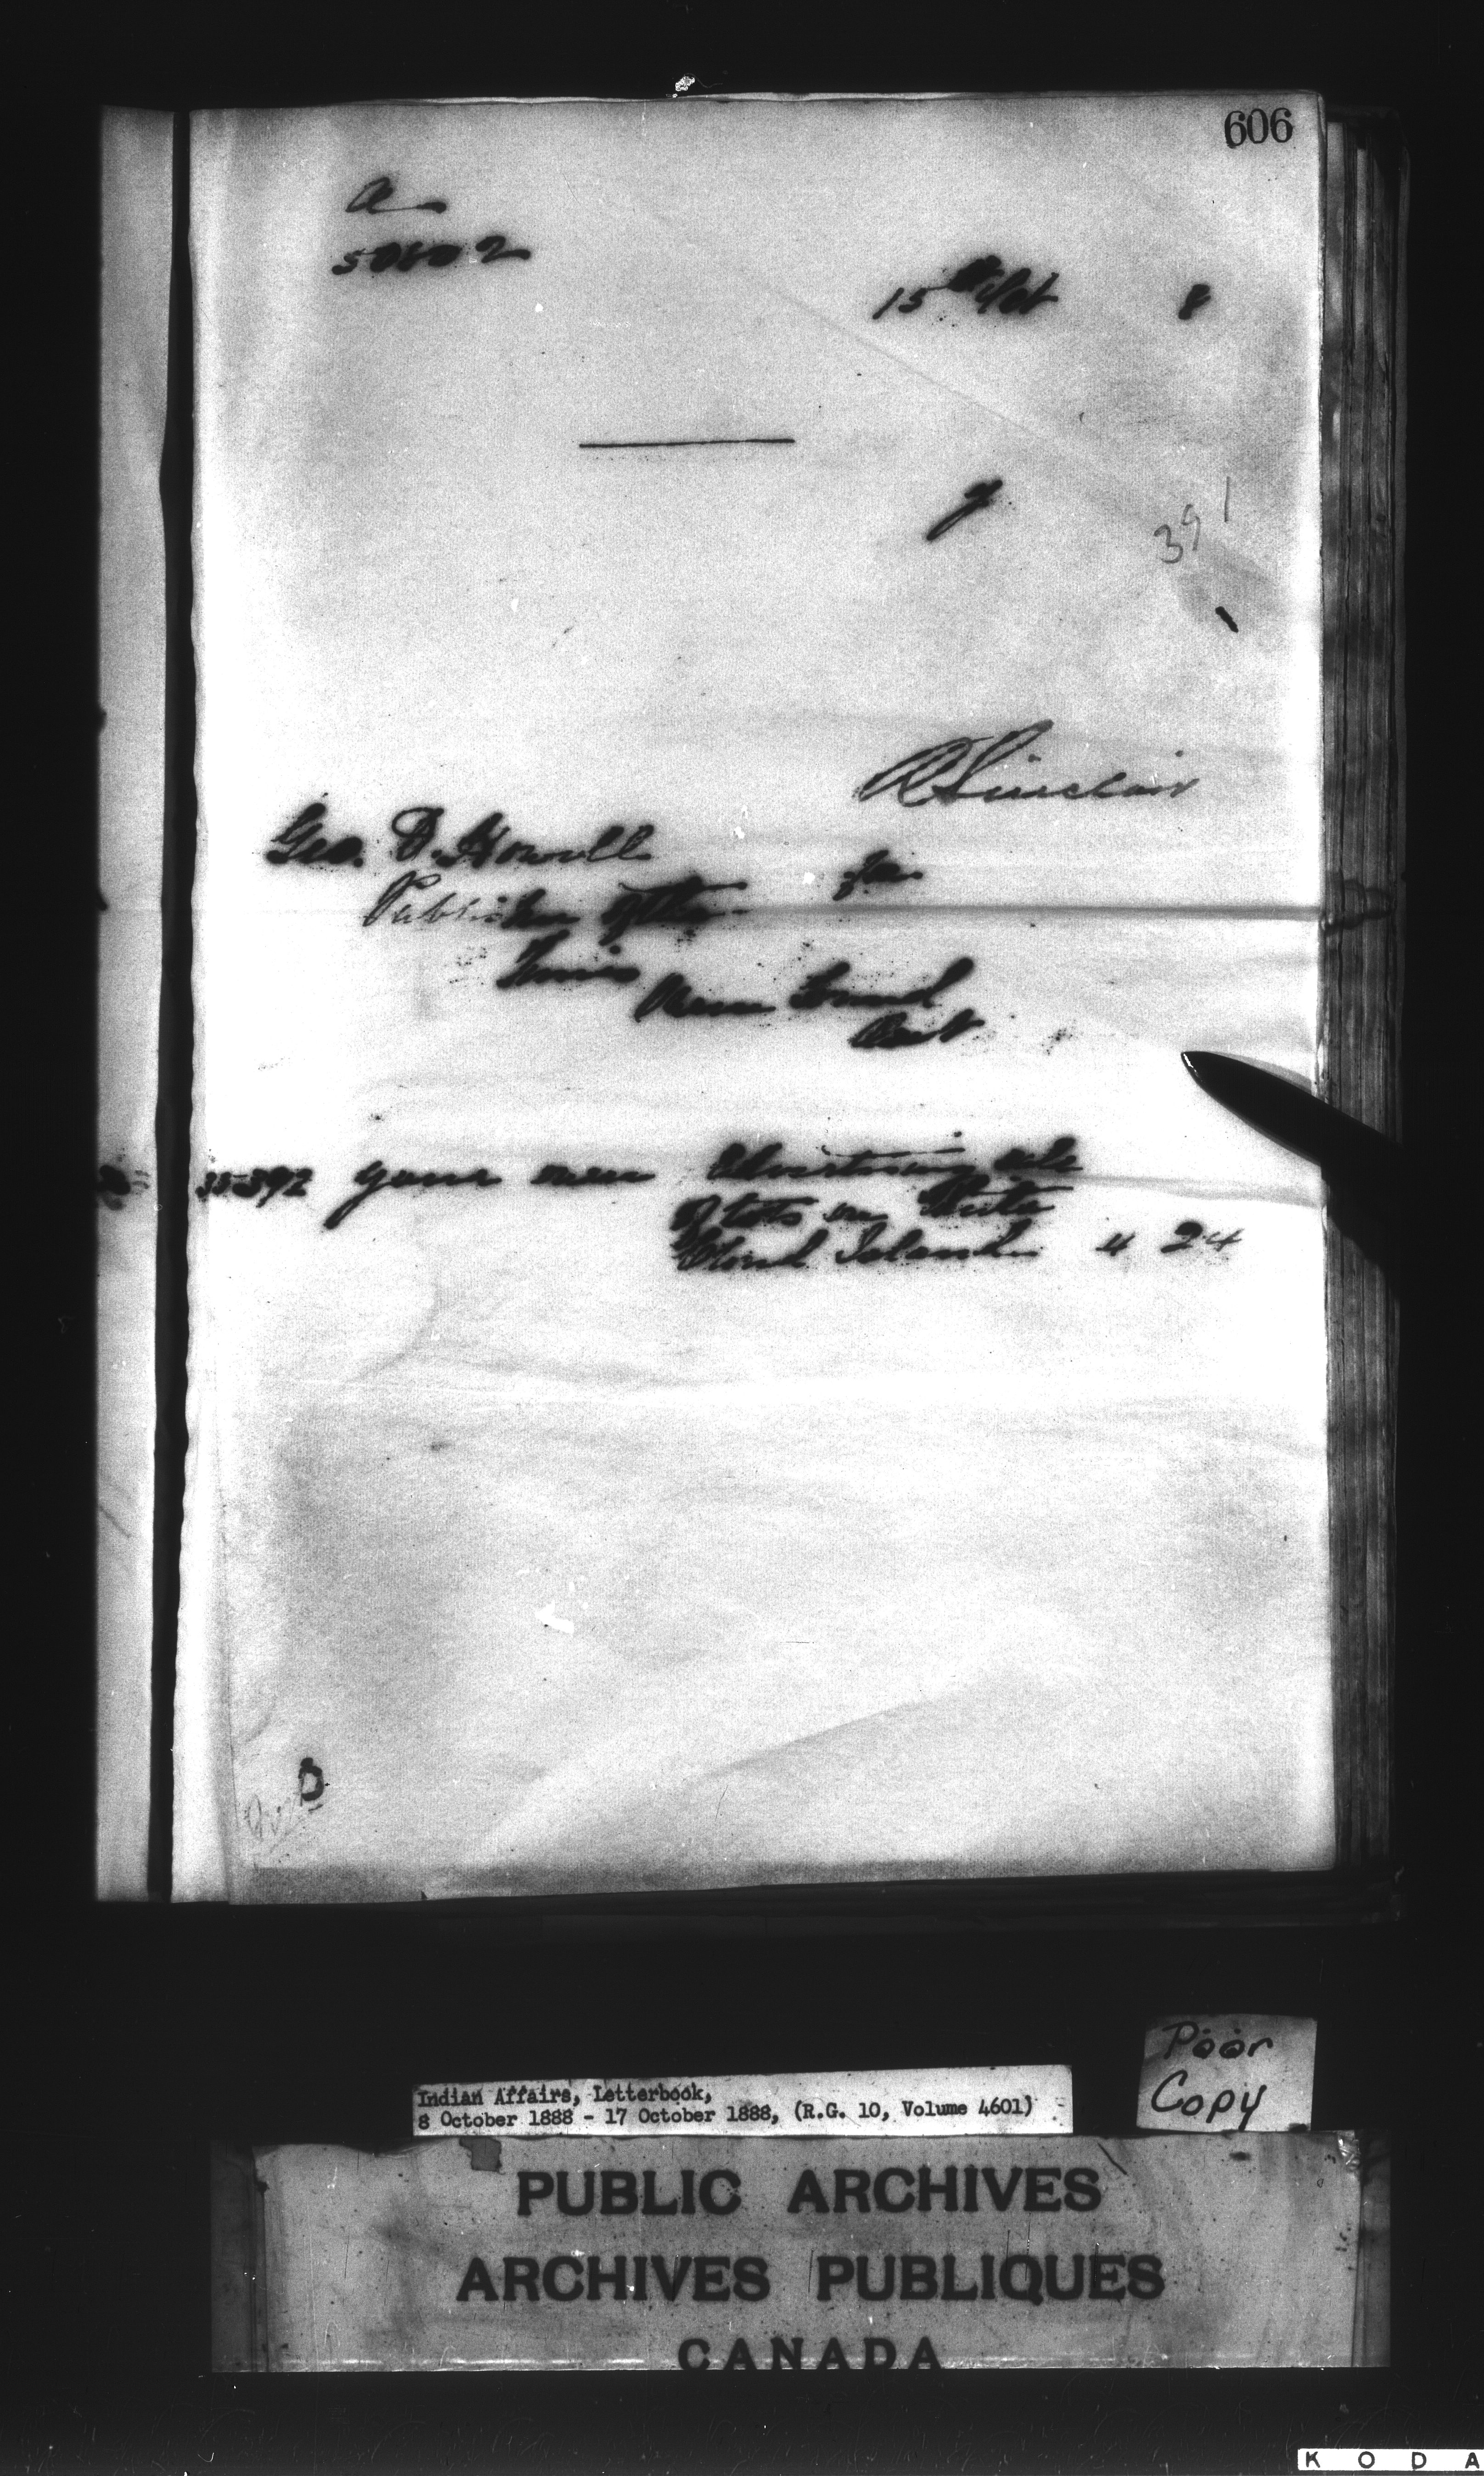 606
a
50802
15th Oct 8
391
R Sinclair
Geo. D. Howell
Publisher of the for
Times
Owen Sound
Ont
35392 yours Advertising sale
of lots on White
Cloud Island 4 24
D
Poor
Copy
Indian Affairs, Letterbook,
8 October 1888 - 17 October 1888, (R.G. 10, Volume 4601)
PUBLIC ARCHIVES
ARCHIVES PUBLIQUES
CANADA
KODA